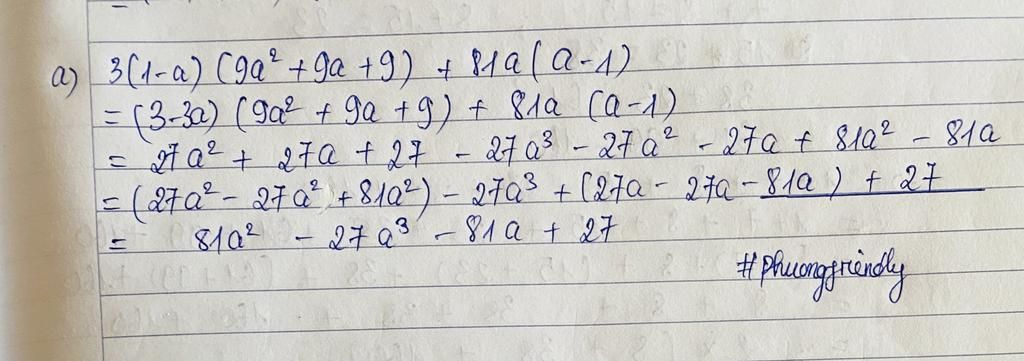 a) 3(1-a) (9a² + 9a + 9) + 81a ( a - 1)
= (3-3a) (9a² + 9a + 9) + 81a (a-1)
= 27a² + 27a + 27 - 27a³ - 27a² - 27a + 81a² - 81a
= (27a² - 27a² + 81a²) - 27a³ + (27a - 27a - 81a ) + 27
= 81a² - 27a³ - 81a + 27
#phuongfriendly